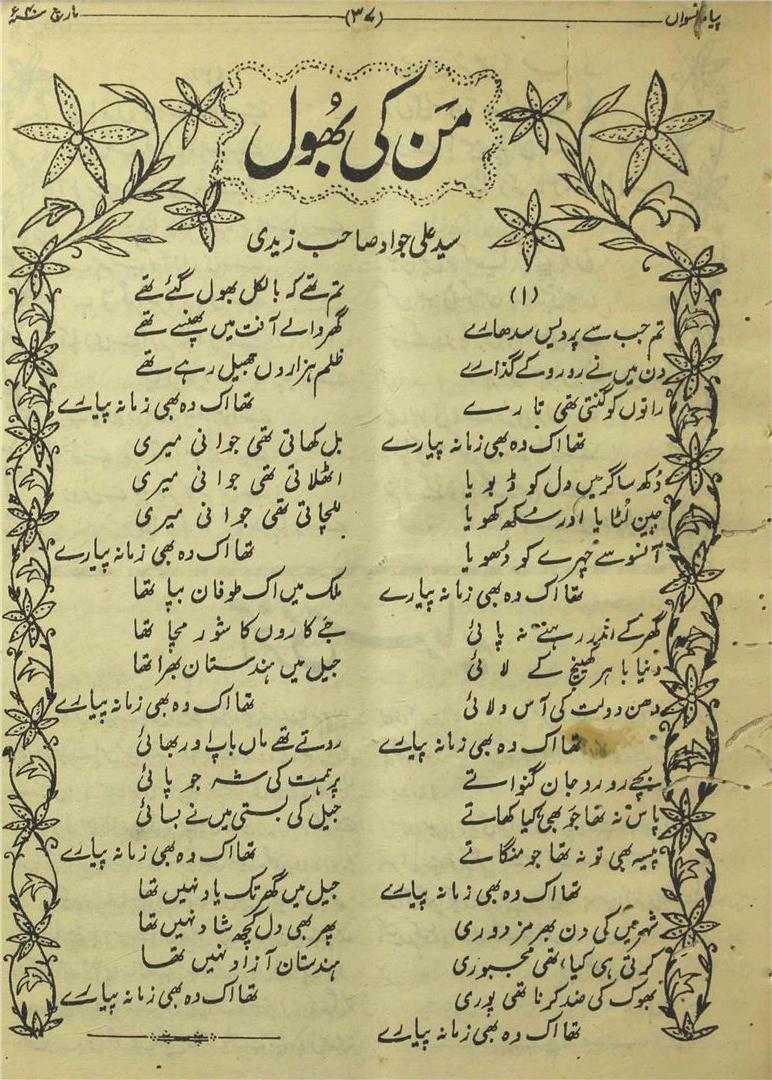 پیام نسواں (۳۷) مارچ سنہ ۴۰ ء
مَن کی بھُول
سید علی جواد صاحب زیدی
(۱)
تم جب سے پردیس سدھارے
دن میں نے رو رو کے گذارے
راتوں کو گنتی تھی تارے
تھا اک وہ بھی زمانہ پیارے
دُکھ ساگر میں دل کو ڈبویا
چین لُٹایا اور سکھ کھویا
آنسو سے چہرے کو دُھویا
تھا اک وہ بھی زمانہ پیارے
گھر کے اندر رہنے نہ پائی
دنیا باہر کھینچ کے لائی
دھن دولت کی آس دلائی
تھا اک وہ بھی زمانہ پیارے
بچے رو رو جان گنواتے
پاس نہ تھا جو بھی کیا کھاتے
پیسہ بھی تو نہ تھا جو منگاتے
تھا اک وہ بھی زمانہ پیارے
شہر میں کی دن بھر مزدوری
کرتی ہی کیا، تھی مجبوری
بھوک کی ضد کرنا تھی پوری
تھا اک وہ بھی زمانہ پیارے
تم تھے کہ بالکل بھول گئے تھے
گھر والے آفت میں پھنسے تھے
ظلم ہزاروں جھیل رہے تھے
تھا اک وہ بھی زمانہ پیارے
بل کھاتی تھی جوانی میری
اٹھلاتی تھی جوانی میری
للچاتی تھی جوانی میری
تھا اک وہ بھی زمانہ پیارے
ملک میں اک طوفان بپا تھا
جے کاروں کا شور مچا تھا
جیل میں ہندستان بھرا تھا
تھا اک وہ بھی زمانہ پیارے
روتے تھے ماں باپ اور بھائی
پر ہمت کی شہ جو پائی
جیل کی بستی میں نے بسائی
تھا اک وہ بھی زمانہ پیارے
جیل میں گھر تک یاد نہیں تھا
پھر بھی دل کچھ شاد نہیں تھا
ہندستان آزاد نہیں تھا
تھا اک وہ بھی زمانہ پیارے